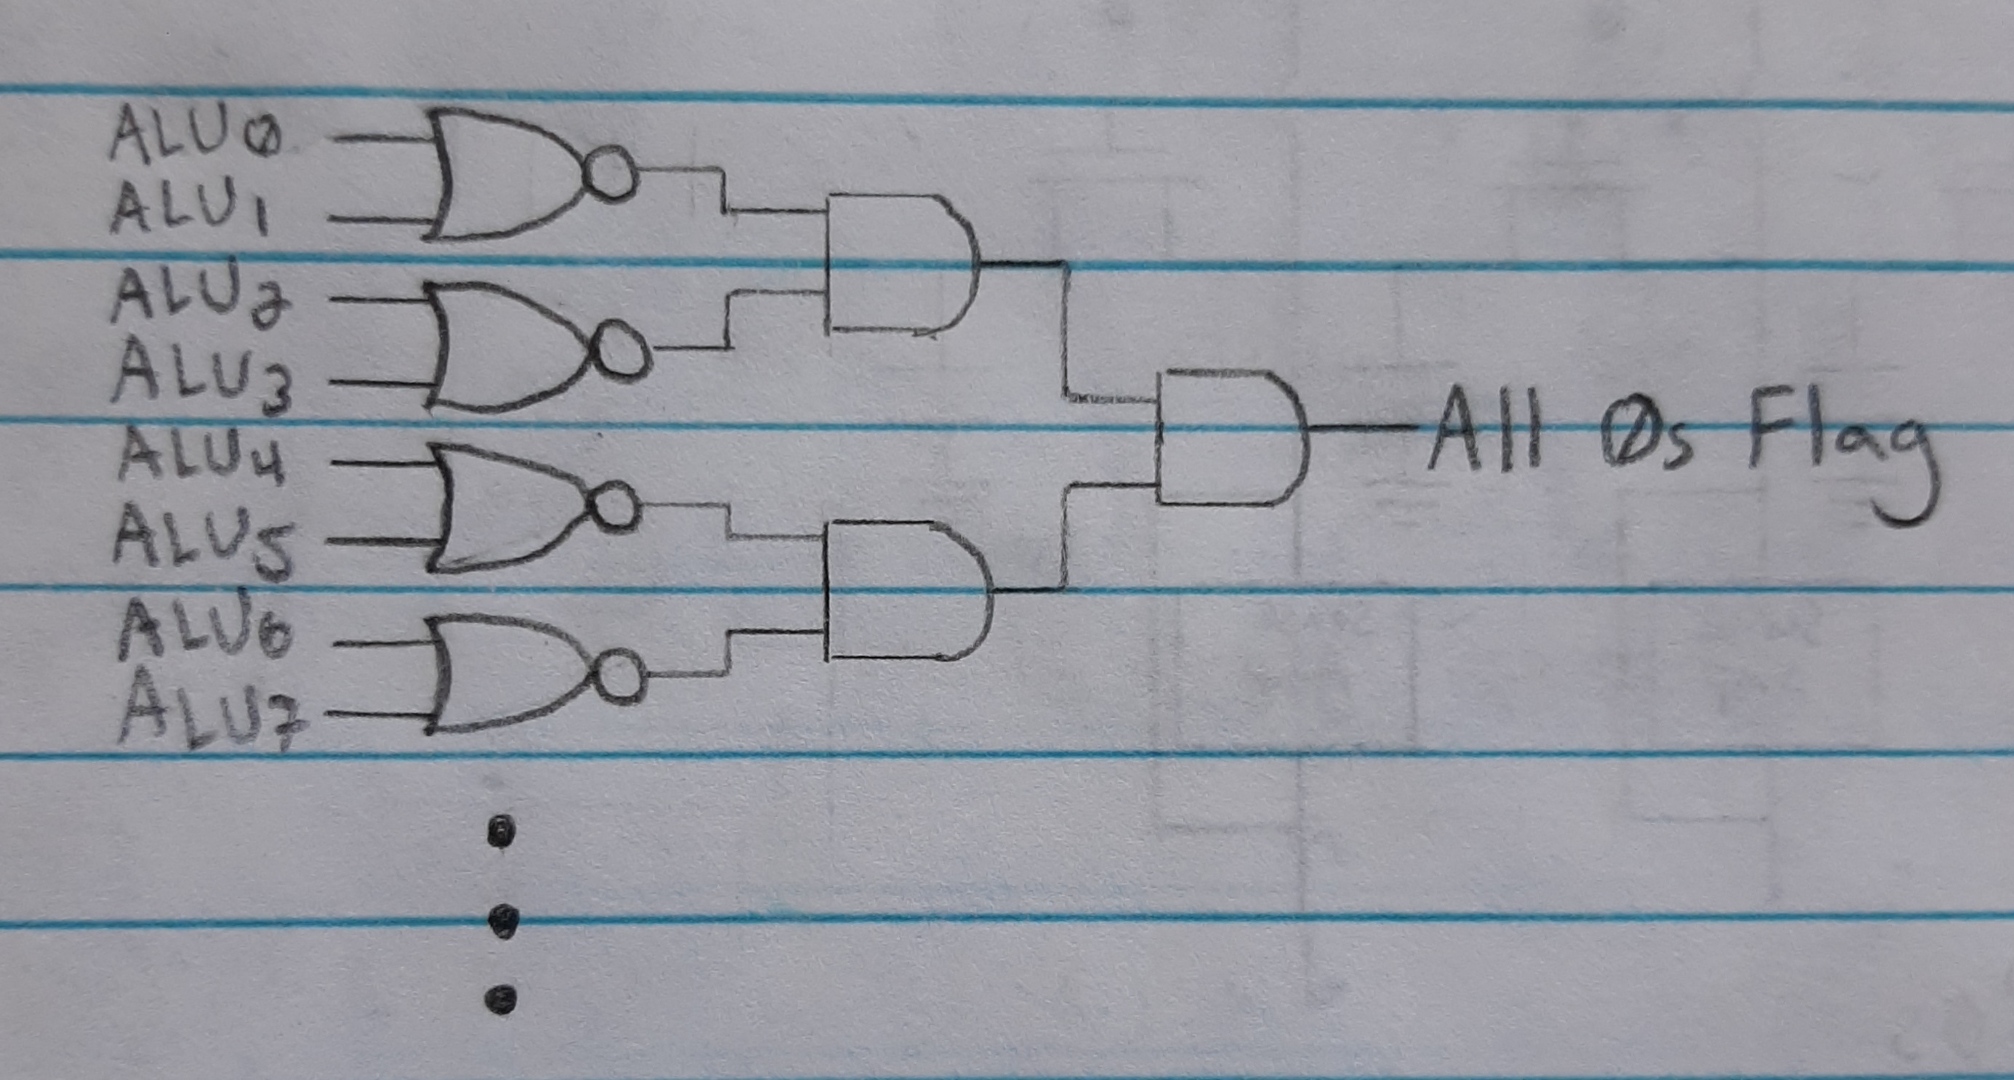 ALU0
ALU1
ALU2
ALU3
ALU4
ALU5
ALU6
ALU7
All 0s Flag